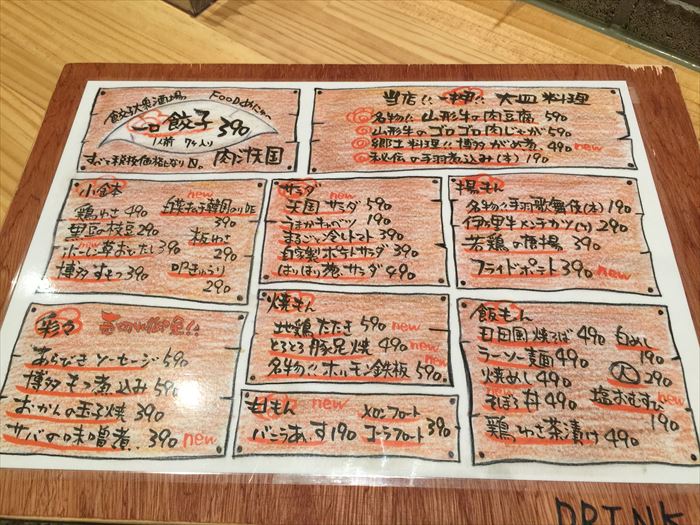 餃子大衆酒場 FOODめにゅー
一口餃子 390
1人前 7ケ入り
すべて税抜価格となります。 肉汁天国
当店!! 一押!! 大皿料理
名物!! 山形牛の肉豆腐 590
山形牛のゴロゴロ肉じゃが 590
郷土料理!! 博多がめ煮 490 new
秘伝の手羽煮込み(本) 190
小鉢
鶏わさ 490
白菜キムチ韓国のり 390 new
黒豆の枝豆 290
ほーれん草おひたし 390
板わさ 290
博多すもつ 390
叩きゅうり 290
サラダ new
天国サラダ 590
うまかキャベツ 190
まるごと冷しトマト 390
自家製ポテトサラダ 390
ぱりぱり サラダ 490
揚もん
名物!! 手羽歌舞伎(本) 190
伊万里牛メンチカツ(ケ) 290
若鶏の唐揚 390
フライドポテト 390 new
彩々
あらびきソーセージ 590
博多もつ煮込み 590
おかんの玉子焼 390
サバの味噌煮 390 new
焼もん
地鶏たたき 590 new
とろとろ豚足焼 490 new
名物!! ホルモン鉄板 590
甘もん new
メロンフロート
バニラあいす 190 コーラフロート 390
飯もん
田田園焼そば 490 白めし 190
ラーソー麺 490
焼めし 490 大 290
new
そぼろ丼 490 塩おむすび 190
鶏わさ茶漬け 490
DRINK